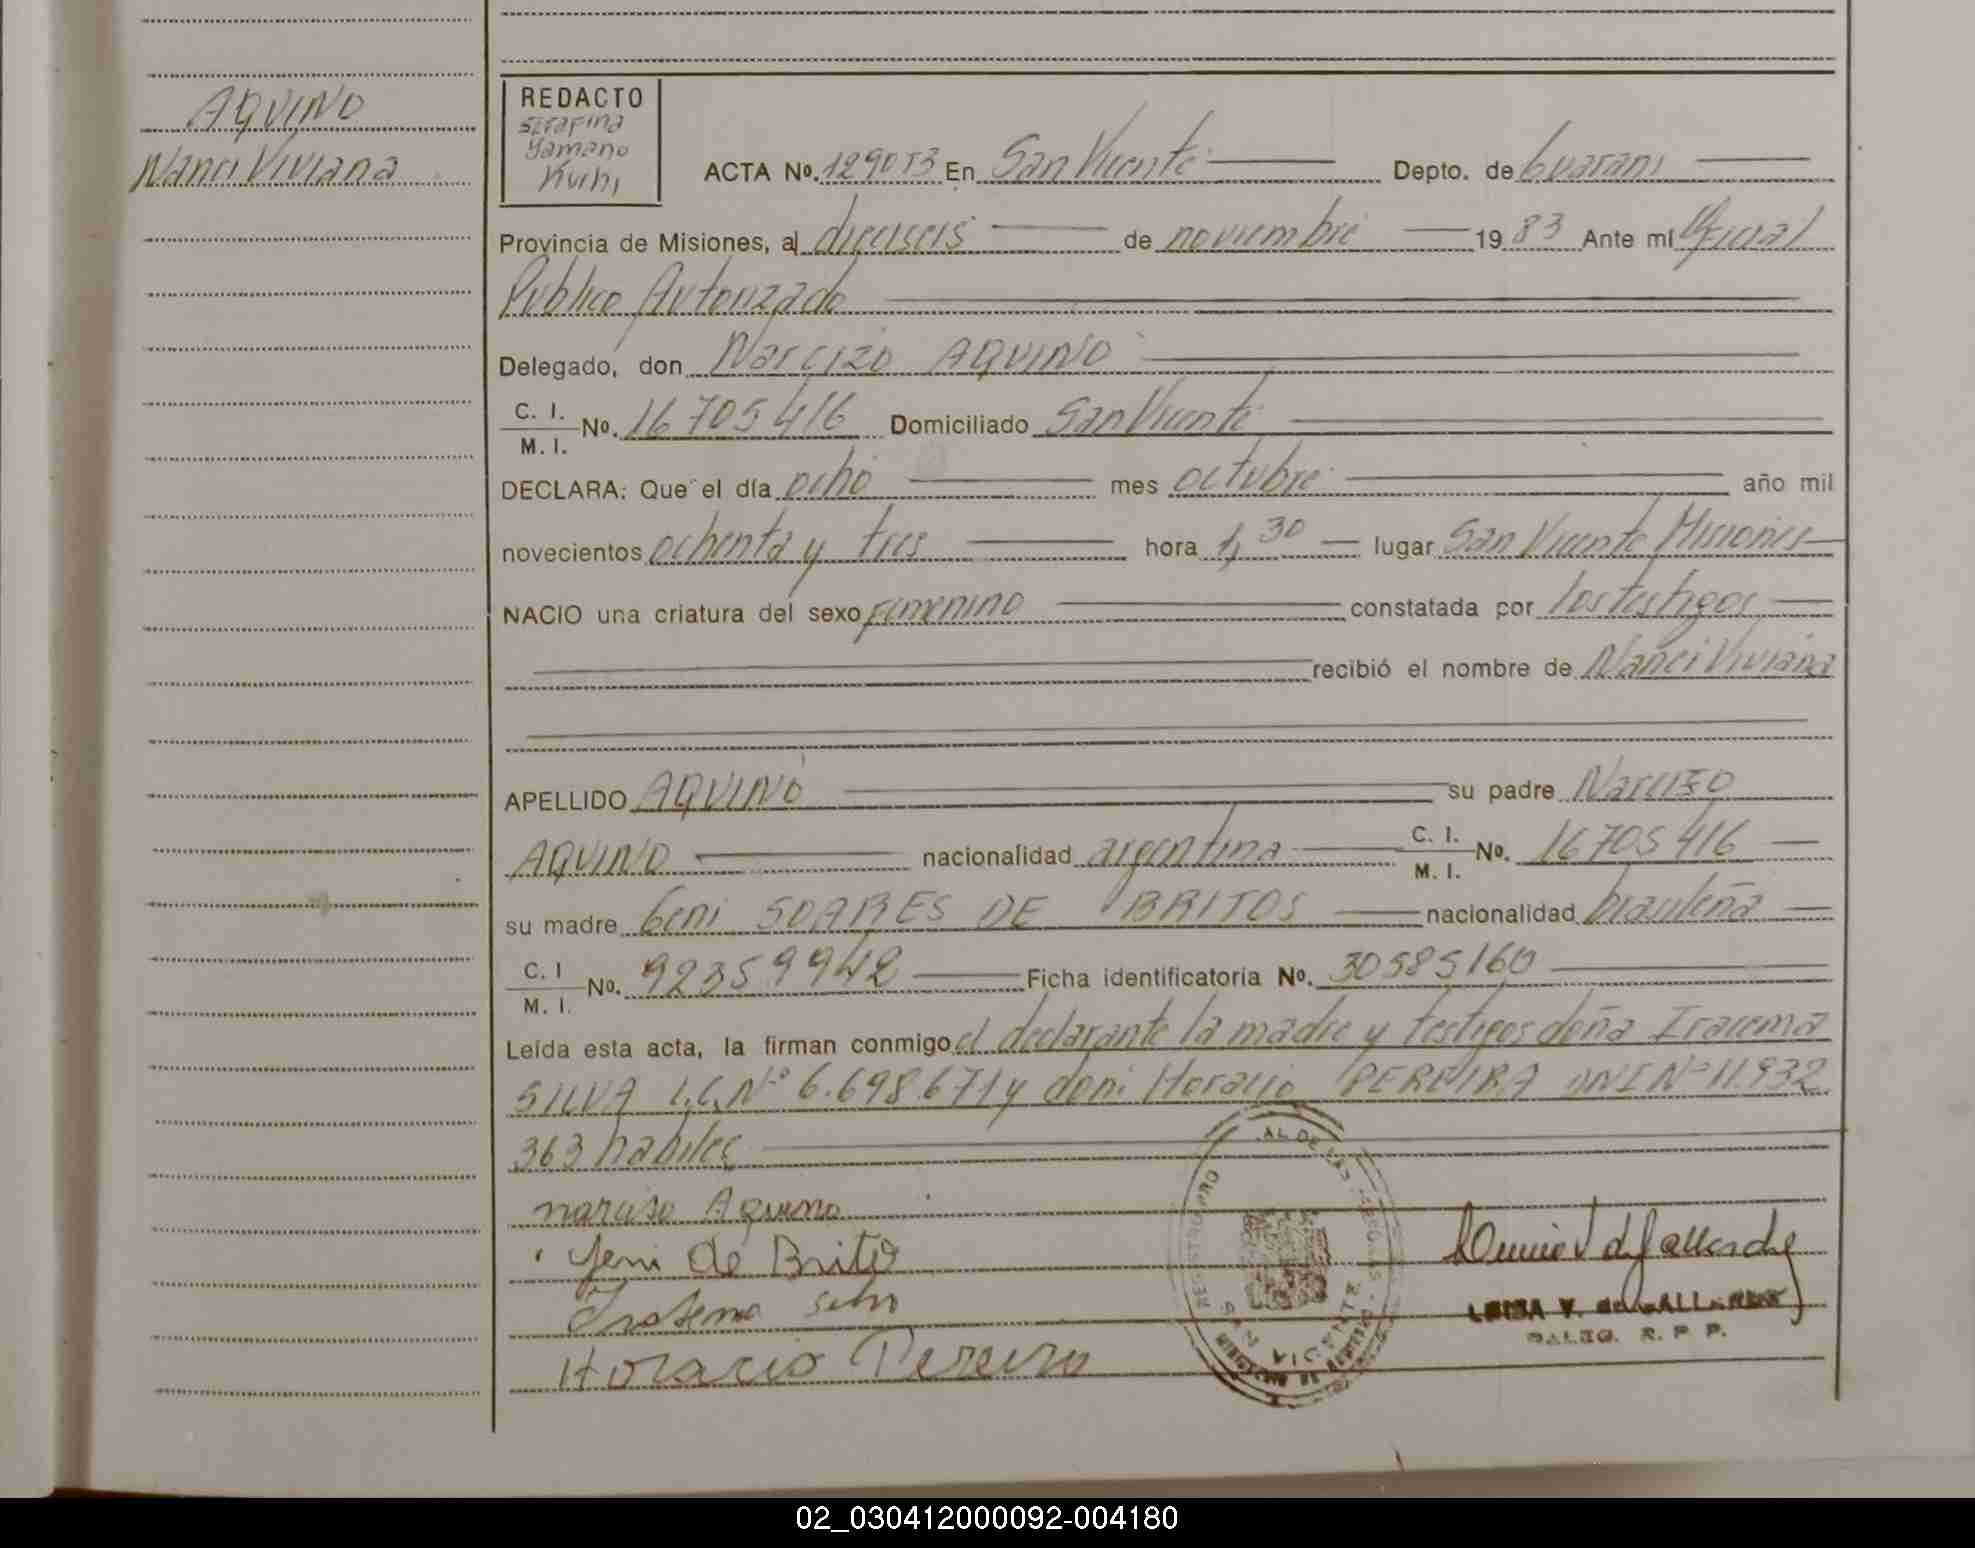 AQUINO
Nanci Viviana
REDACTO
Serafina
Yamano
Kuihi
ACTA Nº. 129053 En San Vicente Depto. de Guarani
Provincia de Misiones, al dieciseis de noviembre 1983 Ante mí Oficial
Publico Autorizado
Delegado, don Narcizo AQUINO
C. I. / M. I. Nº. 16 705 416 Domiciliado San Vicente
DECLARA: Que el día ocho mes octubre año mil
novecientos ochenta y tres hora 1,30 lugar San Vicente Misiones
NACIO una criatura del sexo femenino constatada por los testigos
recibió el nombre de Nanci Viviana
APELLIDO AQUINO su padre Narcizo
AQUINO nacionalidad argentina C. I. / M. I. Nº. 16705416
su madre Geni SOARES DE BRITOS nacionalidad brasileña
C. I / M. I. Nº. 92359942 Ficha identificatoria Nº. 30585160
Leída esta acta, la firman conmigo el declarante la madre y testigos doña Iracema
SILVA L.C. Nº 6.698.671 y don: Horacio PEREIRA DNI Nº 11.932
363 habiles
narciso Aquino
Yeni de Brito
Horacio Pereira
REGISTRO PRO AL DE LAS PERSONAS
SAN VICENTE
LUISA V. de GALLARDO
DALEG. R. P. P.
02_030412000092-004180